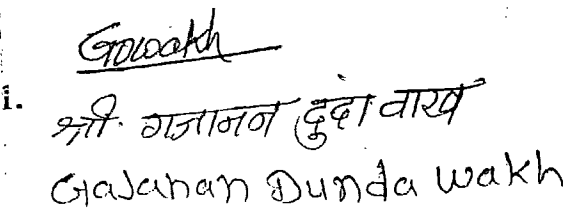 GDWakh
i.
श्री. गजानन दुंदा वाख
Gajanan Dunda Wakh